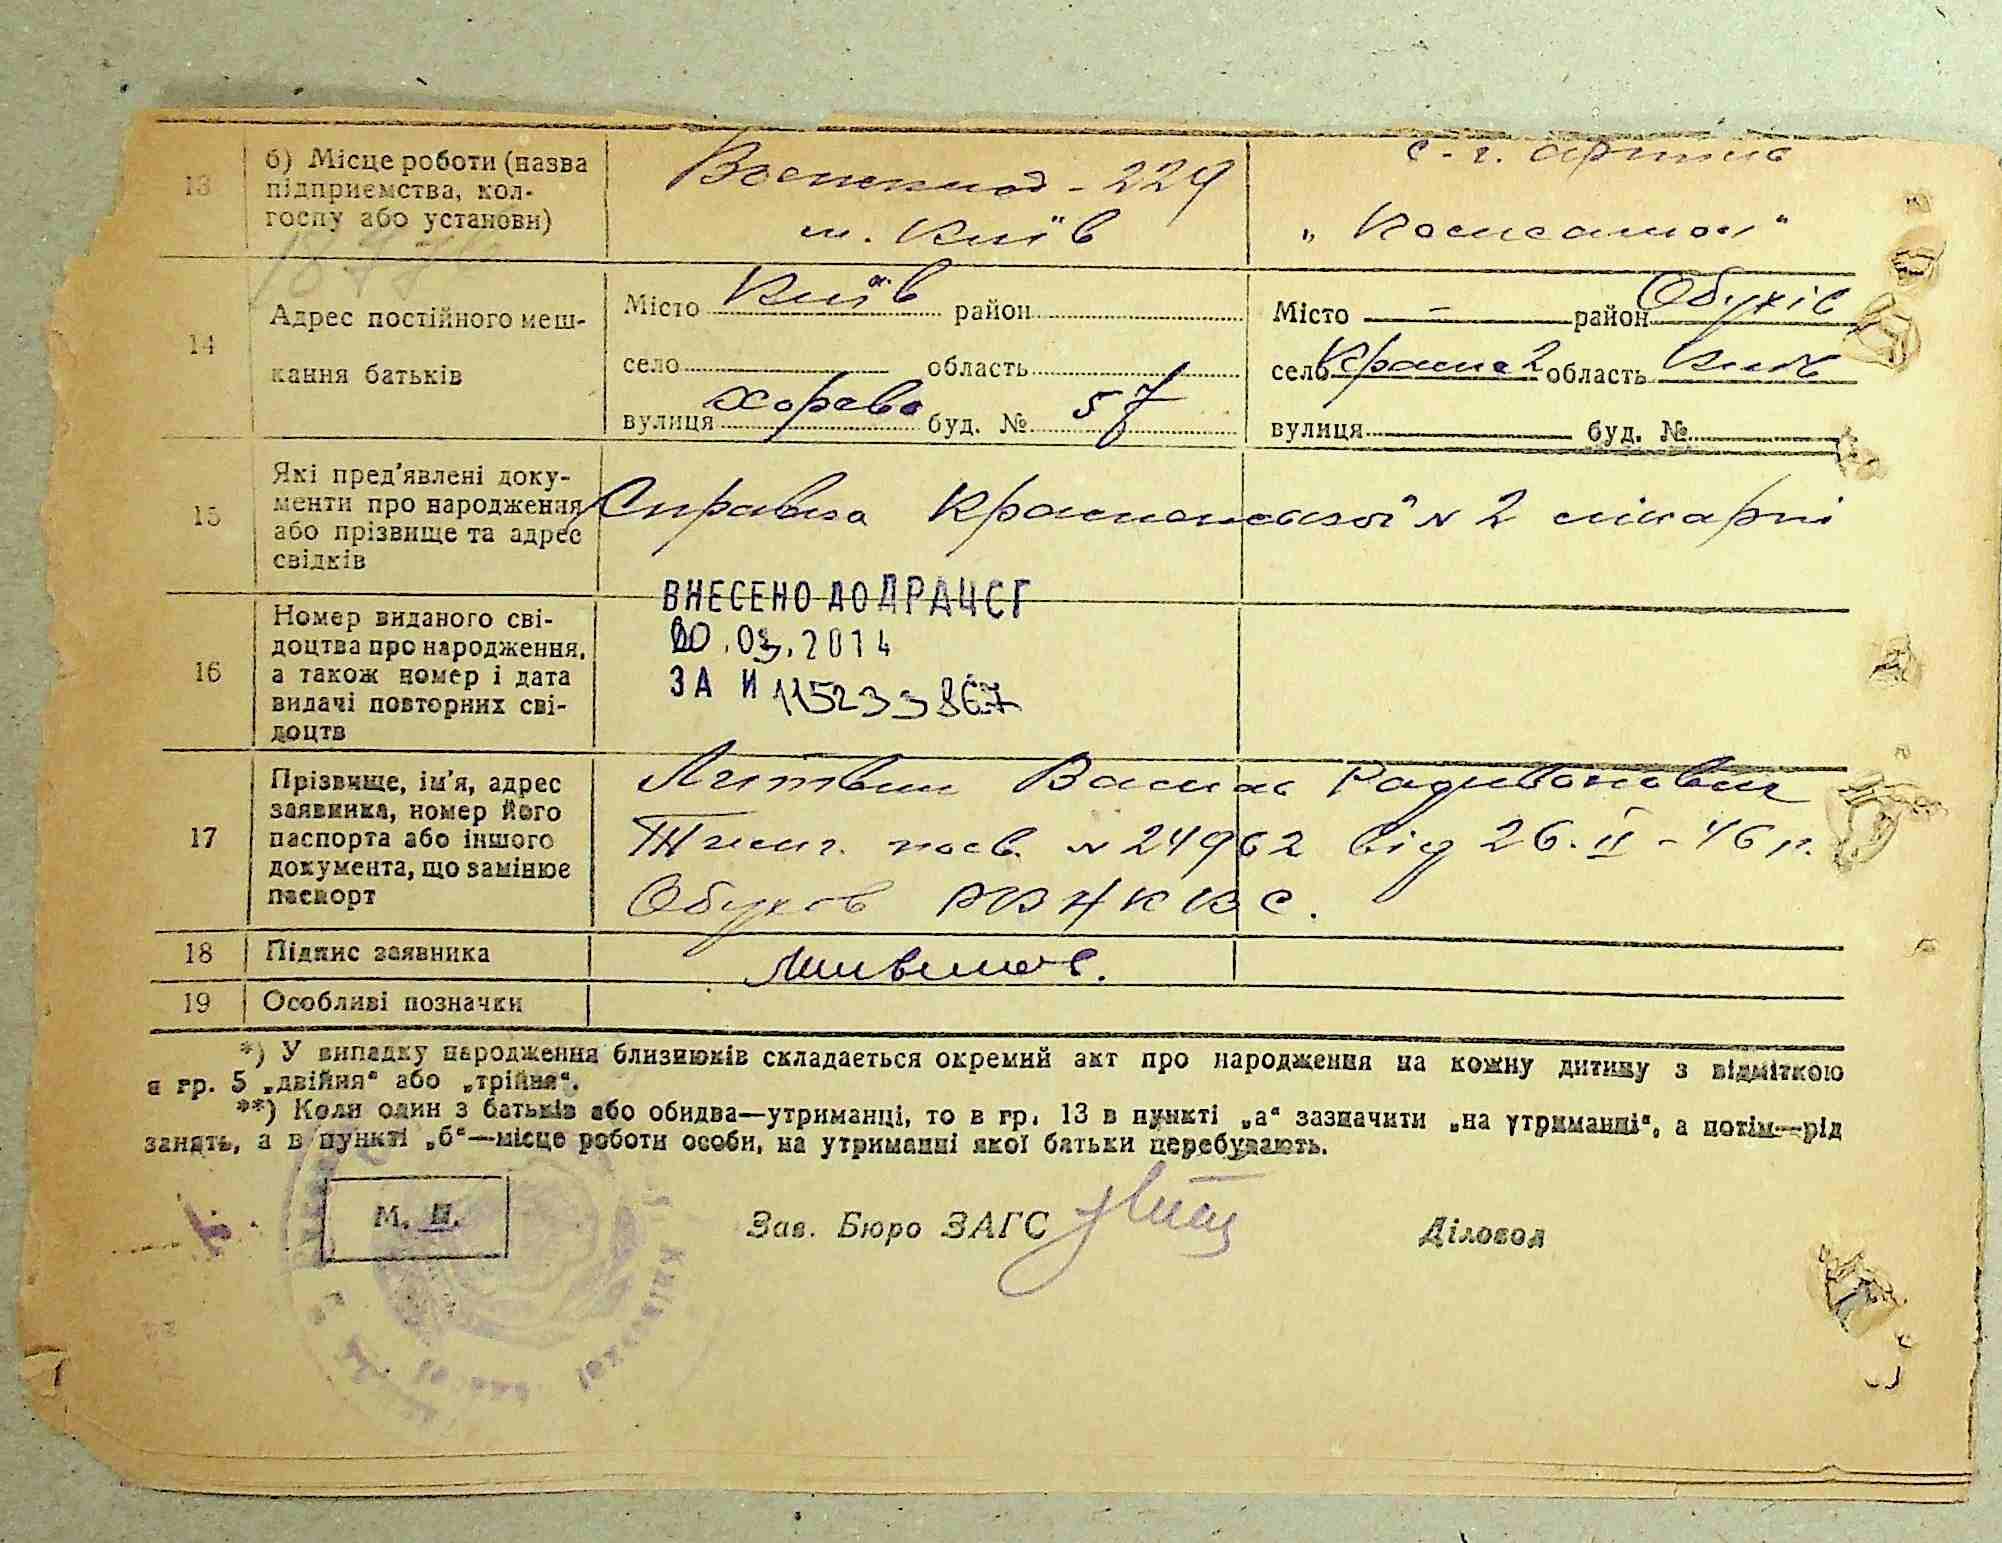 13
б) Місце роботи (назва
підприємства, кол-
госпу або установи)
Военсклад - 224
м. Київ
с-г. артиль
„Комсомол"
14
Адрес постійного меш-
кання батьків
Місто Київ район
село область
вулиця Хорева буд. № 57
Місто - район Обухів
село Красне 2 область Київ
вулиця буд. №
15
Які пред'явлені доку-
менти про народження
або прізвище та адрес
свідків
Справка Красненської № 2 лікарні
16
Номер виданого сві-
доцтва про народження,
а також номер і дата
видачі повторних сві-
доцтв
ВНЕСЕНО ДО ДРАЦСГ
20.03.2014
ЗА И 115233867
17
Прізвище, ім'я, адрес
заявника, номер його
паспорта або іншого
документа, що замінює
паспорт
Литвин Василь Радивонович
Тимч. посв. № 24962 від 26.II-46 р.
Обухов РВ НКВС.
18
Підпис заявника
19
Особливі позначки
*) У випадку народження близнюків складається окремий акт про народження на кожну дитину з відміткою
в гр. 5 „двійня" або „трійня".
**) Коли один з батьків або обидва—утриманці, то в гр. 13 в пункті „а" зазначити „на утриманні", а потім—рід
занять, а в пункті „б"—місце роботи особи, на утриманні якої батьки перебувають.
М. П.
Зав. Бюро ЗАГС
Діловод
Київської